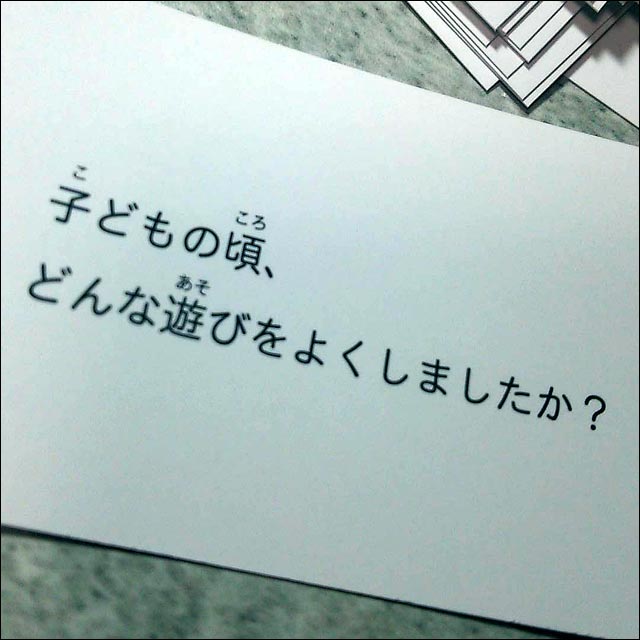 こ ころ
子どもの頃、
あそ
どんな遊びをよくしましたか?